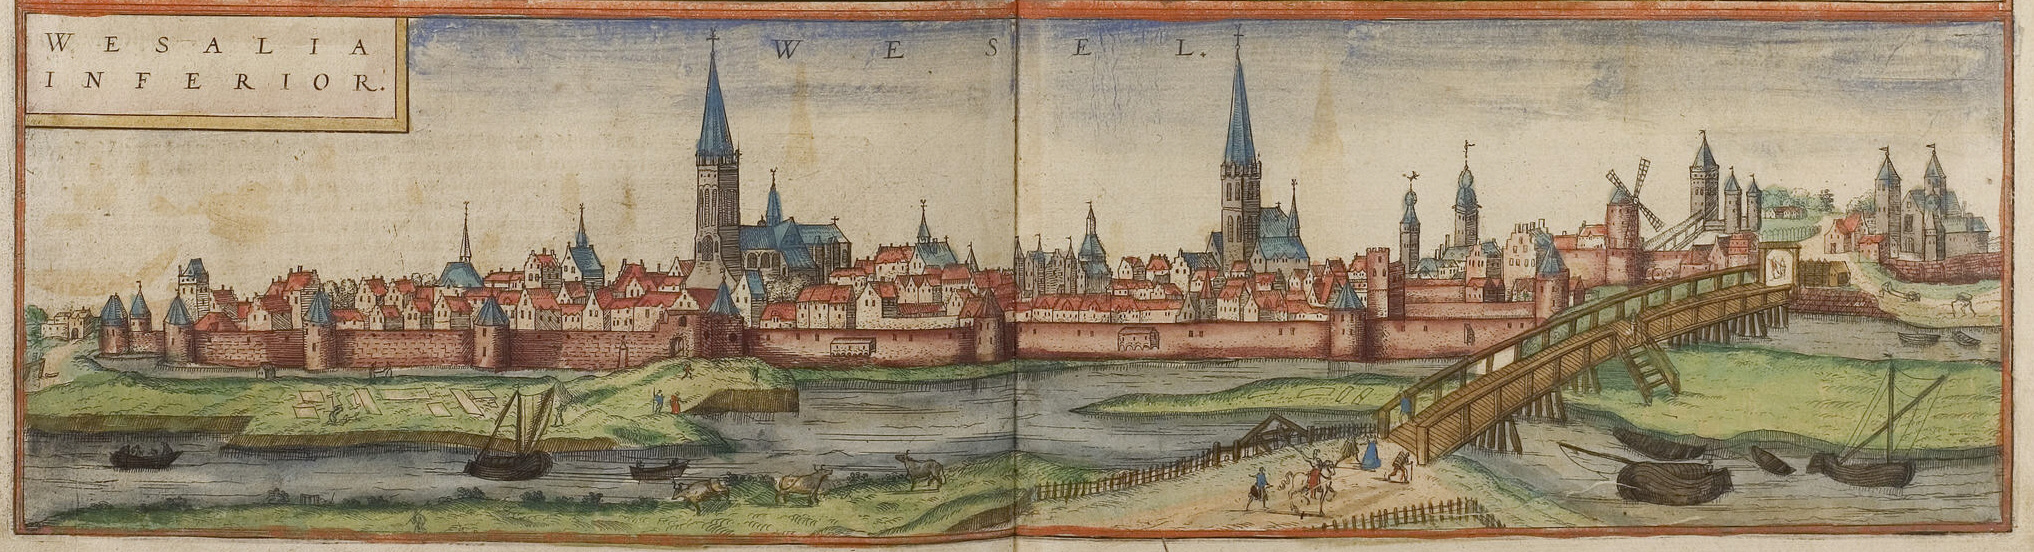 WESALIA
INFERIOR.
WESEL.